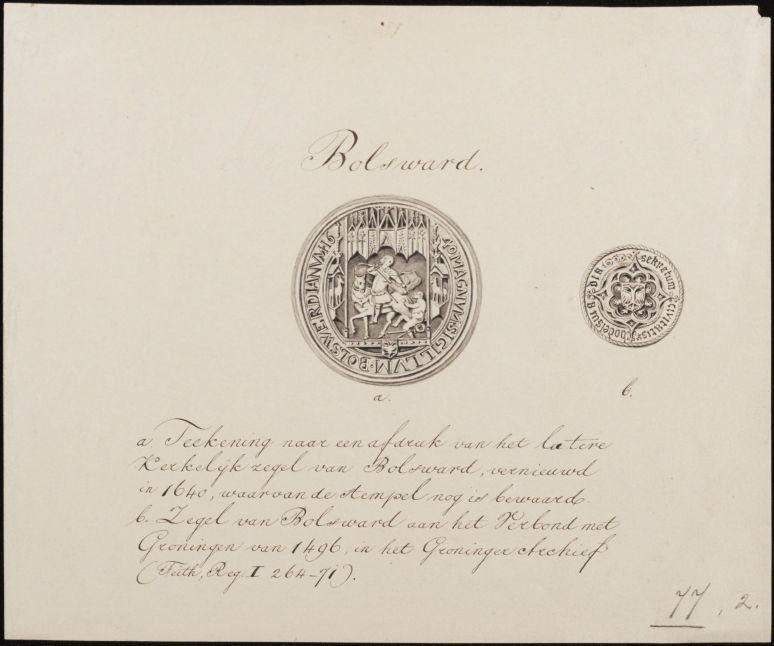 Bolsward.
1640 MAGNVM SIGILLVM BOLSWERDIANVM
sekretum civitatis bodelsuardia
a.
b.
a. Teekening naar een afdruk van het latere
Kerkelijk zegel van Bolsward, vernieuwd
in 1640, waarvan de stempel nog is bewaard.
b. Zegel van Bolsward aan het Verbond met
Groningen van 1496, in het Groninger Archief
(Feith, Reg. I 264-71).
77, 2.